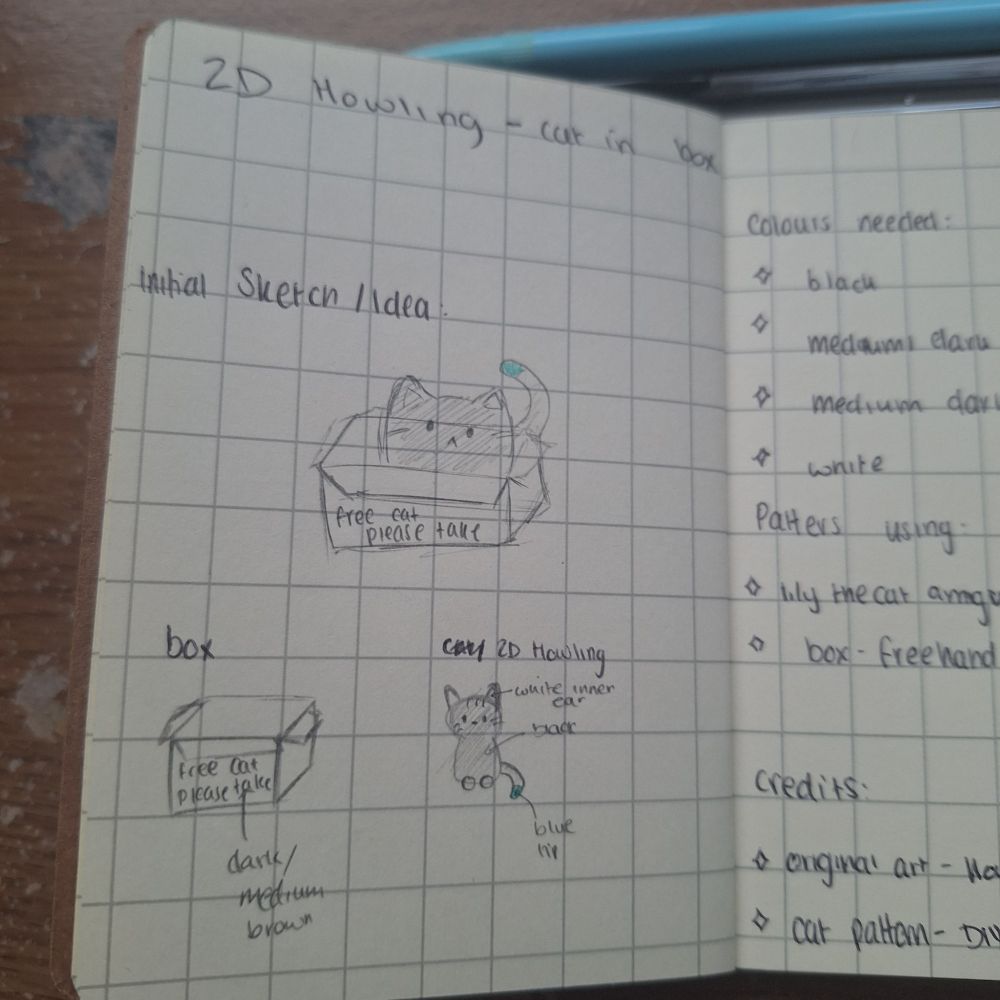 2D Howling - cat in box
Initial Sketch / Idea:
free cat
please take
box
free cat
please take
dark/
medium
brown
2D Howling
white inner
ear
black
blue
tip
Colours needed:
black
medium
medium
white
Patters using:
lily the cat
box - freehand
Credits:
original art -
cat pattern -